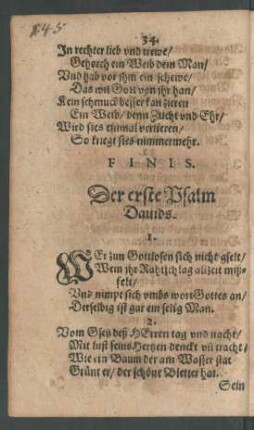 34.
In rechter lieb vnd trewe/
Gehorch ein Weib dem Man/
Vnd hab vor jhm ein schewe/
Das wil Gott von jhr han/
Kein schmuck besser kan zieren
Ein Weib/ denn Zucht vnd Ehr/
Wird sies einmal verlieren/
So kriegt sies nimmermehr.
FINIS.
Der erste Psalm
Dauids.
1.
WEr zun Gottlosen sich nicht gselt/
Wem jhr Rahtschlag allzeit miß-
felt/
Vnd nimpt sich vmbs wort Gottes an/
Derselbig ist gar ein selig Man.
2.
Vom Gsetz deß HErren tag vnd nacht/
Mit lust seins Hertzen denckt vñ tracht/
Wie ein Baum der am Wasser stat
Grünt er/ der schöne Bletter hat.
Sein